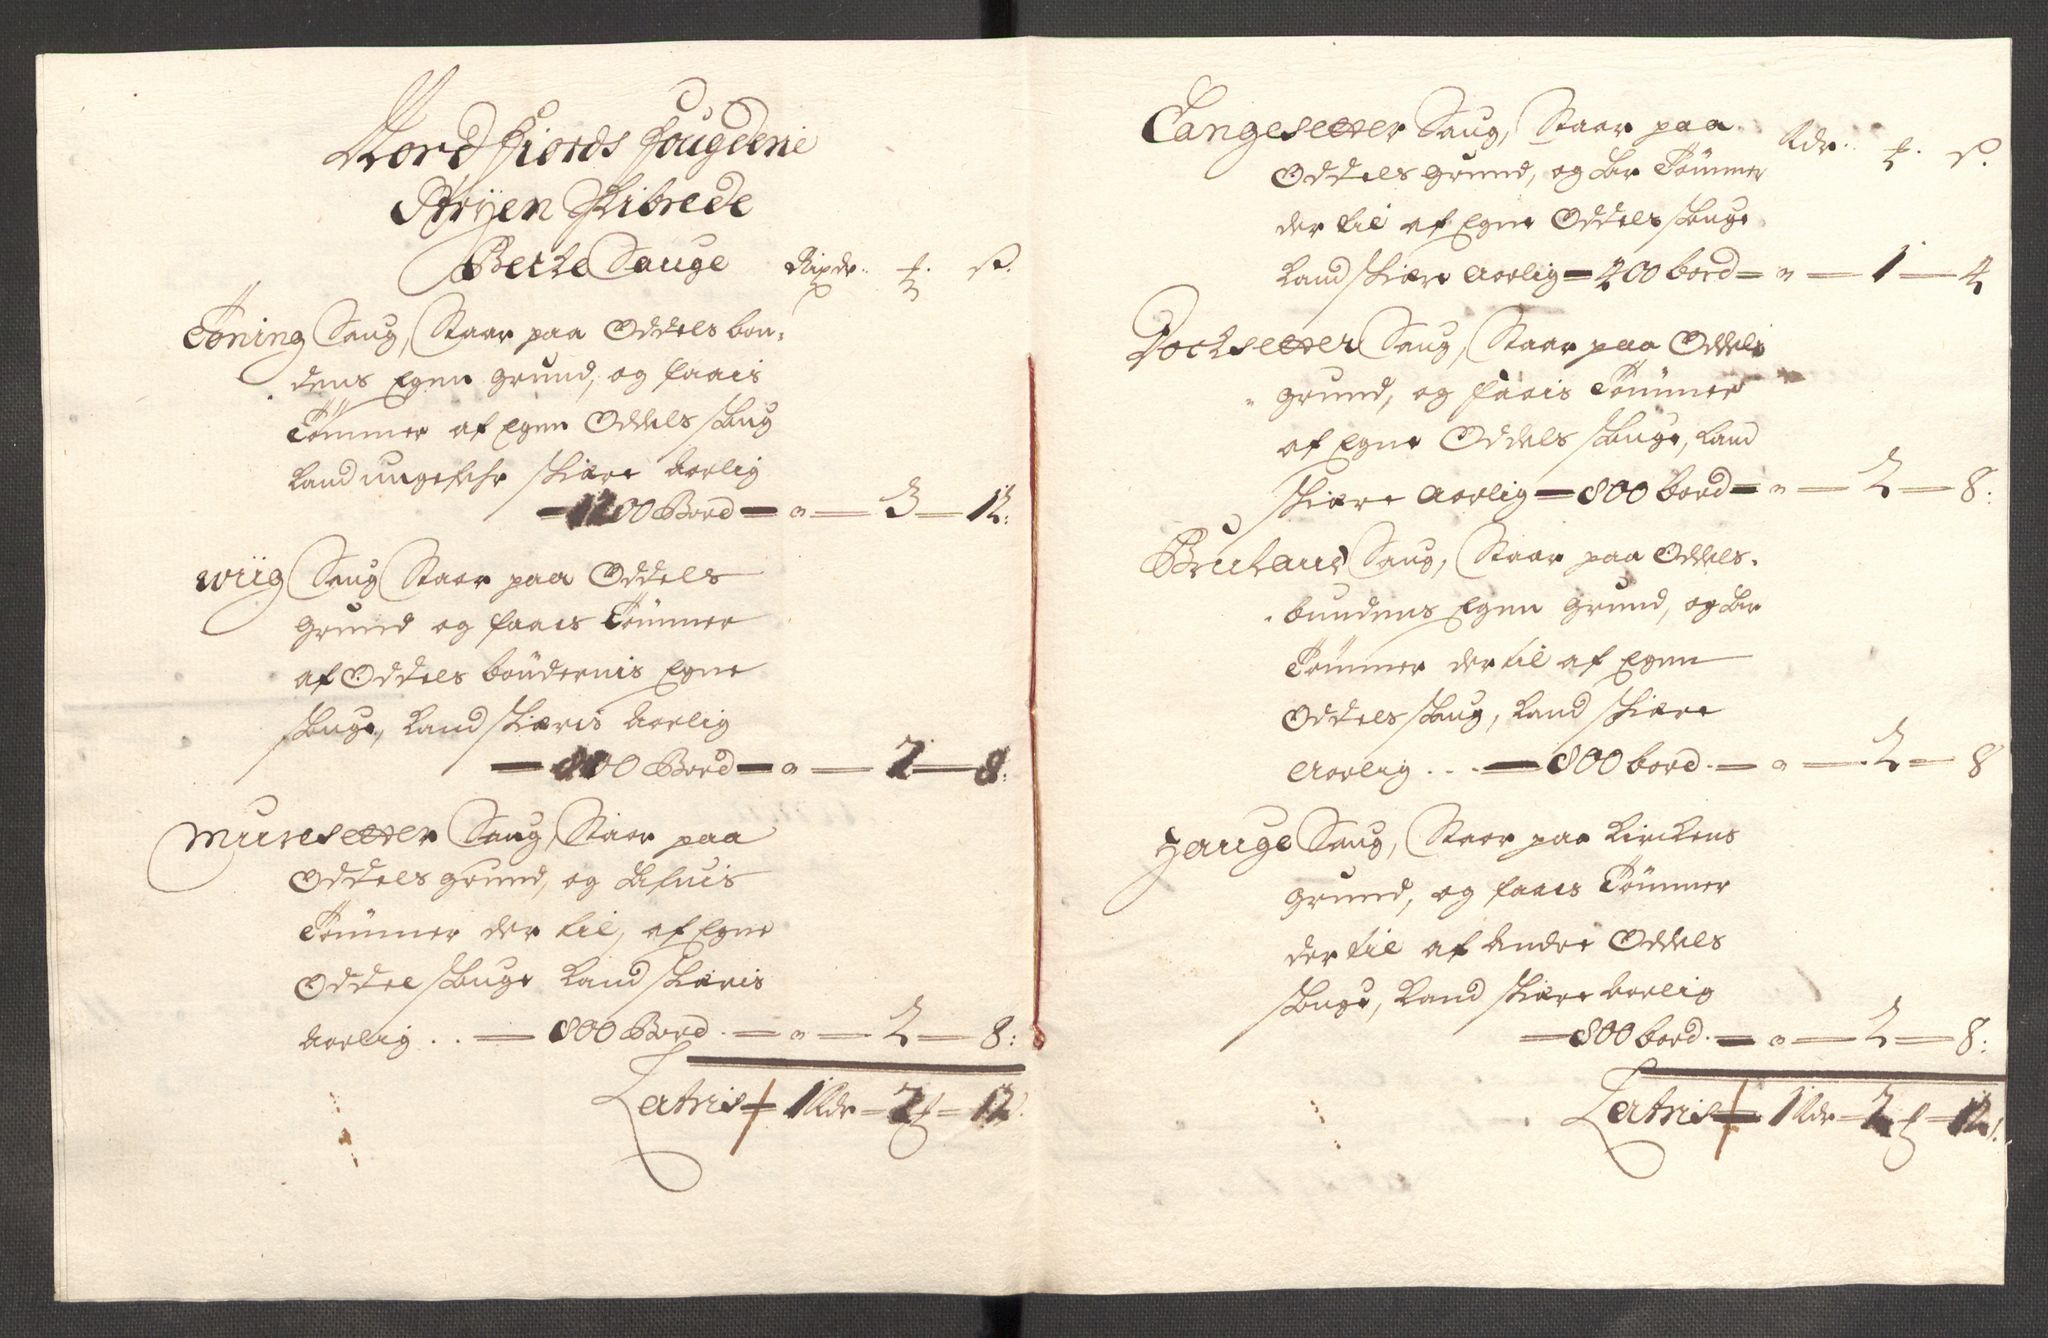 Nordfiords fougderie
Stryen Skibrede
Becke Sauge Rixdr. ₰. s.
Töning Saug, Staar paa Oddels bon-
dens Egen grund, og faais
Tömmer af Egen Oddels skoug
kand ungefehr skiære Aarlig
1200 Bord - " - 3 - 12:
Wiig Saug Staar paa Oddels
grund og faaes Tömmer
af Oddels böndernis Egne
skouge, kand skiæris Aarlig
800 Bord - " - 2 - 8:
Muresetter Saug, Staar paa
Oddels grund, og
Tömmer der til, af Egne
Oddel skouge kand skiæris
Aarlig . . - 800 Bord - " - 2 - 8:
Latris - 1 Rdr - 2 ₰ - 12.
Tangesetter Saug, Staar paa Rdr. ₰. s.
Oddels grund, og har Tömmer
der til af Egne Oddels skouge
kand skiære Aarlig - 400 bord - " - 1 - 4
Dochsetter Saug, Staar paa Oddels
grund, og faais Tömmer
af Egne Oddels skouge, kand
skiære Aarlig - 800 bord - " - 2 - 8:
Saug, Staar paa Oddels-
bundens Egen grund, og har
Tömmer der til af Egen
Oddels skoug, kand skiære
Aarlig . . . - 800 bord. - " - 2 - 8
Hauge Saug, Staar paa Kirckens
grund, og faaes Tömmer
der til af Andre Oddels
skouge, kand skiære Aarlig
- 800 bord. - " - 2 - 8:
Latris - 1 Rdr - 2 ₰ - 12 s.